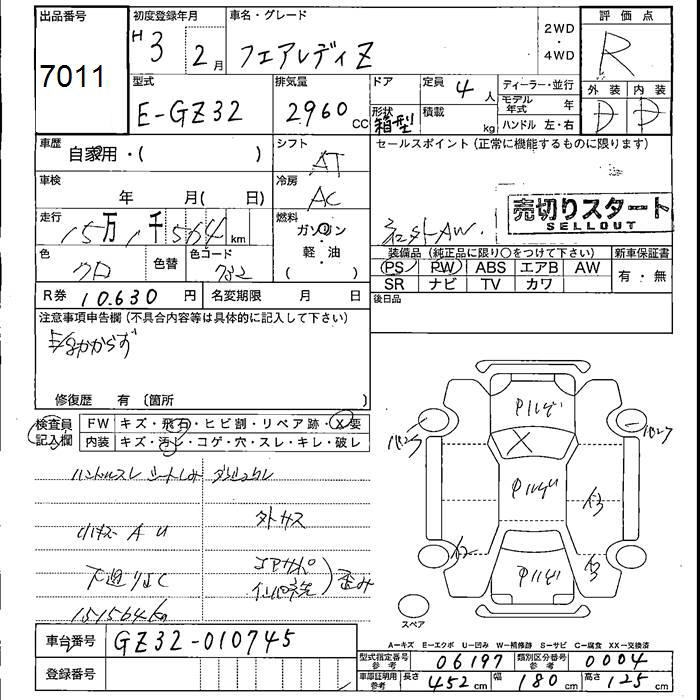 出品番号
7011
初度登録年月
H 3 2月
車名・グレード
フェアレディZ
2WD
・
4WD
評価点
R
外装 内装
D D
型式
E-GZ32
排気量
2960 CC
ドア
形状
箱型
定員 4 人
積載 kg
ディーラー・並行
モデル年式 年
ハンドル 左・右
車歴
自家用・( )
シフト
AT
セールスポイント(正常に機能するものに限ります)
車検
年 月( 日)
冷房
AC
走行
15万1千564km
燃料
ガソリン
・
軽・油
( )
社外AW.
売切りスタート
SELLOUT
色
クロ
色替
色コード
732
装備品(純正品に限り○をつけて下さい)
新車保証書
PS PW ABS エアB AW
有・無
SR ナビ TV カワ
R券 10.630 円
名変期限 月 日
後日品
注意事項申告欄(不具合内容等は具体的に記入して下さい)
修復歴 有 〔箇所
検査員
記入欄
FW キズ・飛石・ヒビ割・リペア跡・X要
内装 キズ・汚レ・コゲ・穴・スレ・キレ・破レ
ハンドルスレ シートしみ
小キズ A U
下廻りSC
151564km
外サス
コアサポ
歪み
Pハゲ
X
Pハゲ
Pハゲ
A2
A3
スペア
A=キズ E=エクボ U=凹み W=補修跡 S=サビ C=腐食 XX=交換済
車台番号 GZ32-010745
登録番号
型式指定番号
参考
06197
類別区分番号
参考
0004
車庫証明用
参考
長さ 452cm 幅 180cm 高さ 125cm